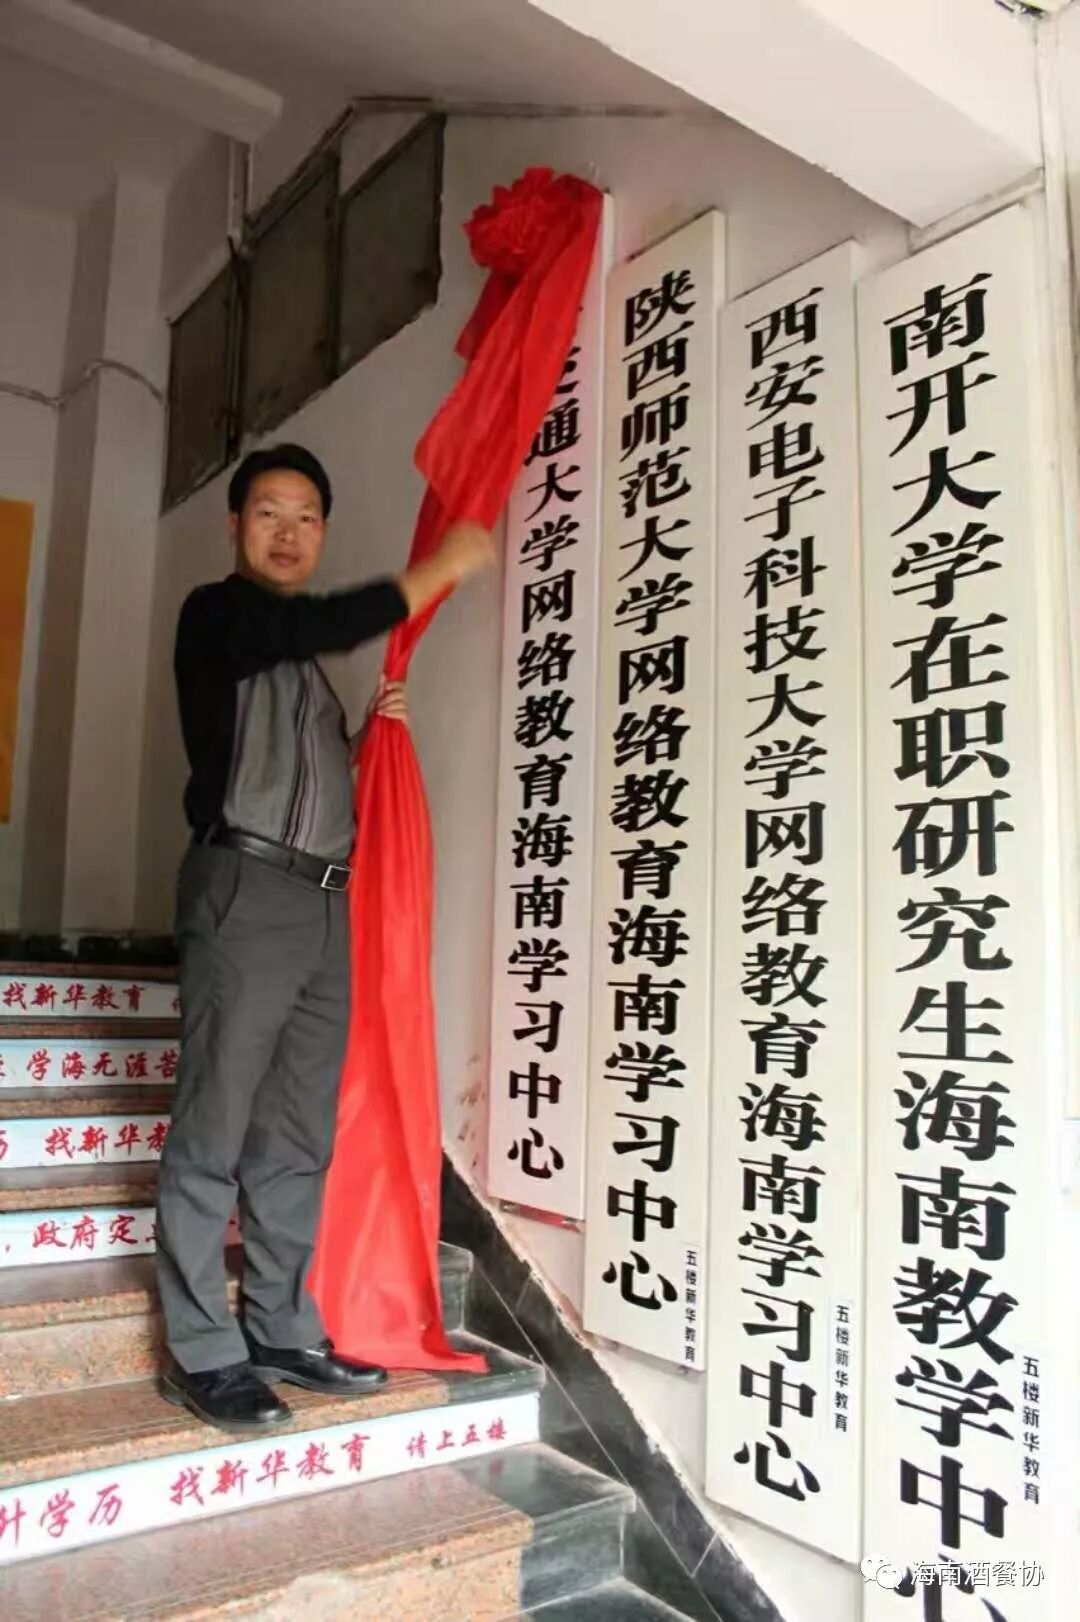 交通大学网络教育海南学习中心
陕西师范大学网络教育海南学习中心
五楼新华教育
西安电子科技大学网络教育海南学习中心
五楼新华教育
南开大学在职研究生海南教学中心
五楼新华教育
找新华教育
学海无涯苦
历 找新华教
，政府定
升学历 找新华教育 请上五楼
海南酒餐协